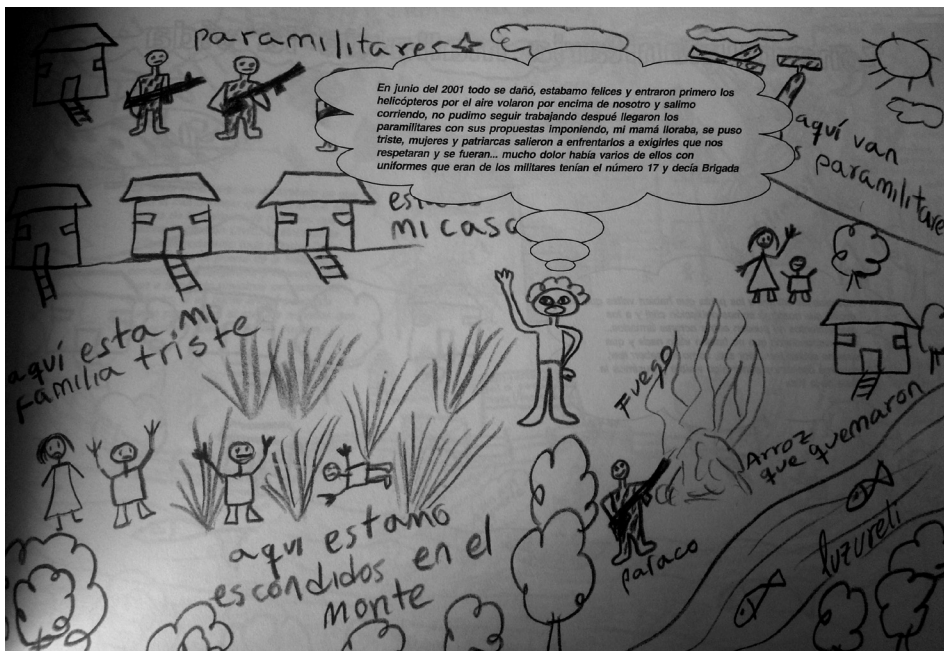 paramilitares
En junio del 2001 todo se dañó, estabamo felices y entraron primero los
helicópteros por el aire volaron por encima de nosotro y salimo
corriendo, no pudimo seguir trabajando despué llegaron los
paramilitares con sus propuestas imponiendo, mi mamá lloraba, se puso
triste, mujeres y patriarcas salieron a enfrentarlos a exigirles que nos
respetaran y se fueran... mucho dolor había varios de ellos con
uniformes que eran de los militares tenían el número 17 y decía Brigada
aquí van
paramilitare
mi casa
aquí esta mi
familia triste
Fuego
Arroz
que quemaron
paraco
aqui estamo
escondidos en el
monte